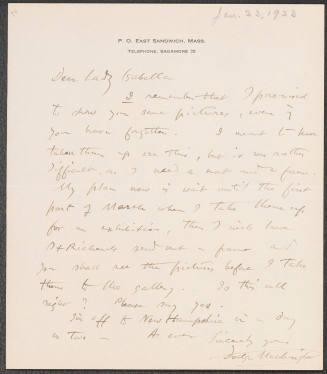 Jan. 22, 1922
P. O. EAST SANDWICH, MASS.
TELEPHONE, SAGAMORE
Dear Lady Isabella
I remember that I promised
to show you some pictures, even if
you have forgotten. I meant to have
taken them up on this, but it was rather
difficult as I need a mat and a frame.
My plan now is wait until the first
part of March when I take them up
for an exhibition, then I will have
Richards send out a frame and
you shall see the pictures before I take
them to the gallery. Is this all
right? Please say yes.
I'm off to New Hampshire in a day
or two — As ever
Sincerely yours
Dodge